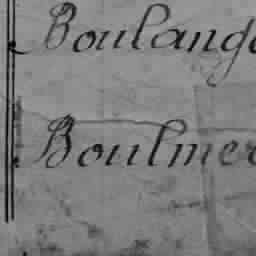 Boulang
Boulmer